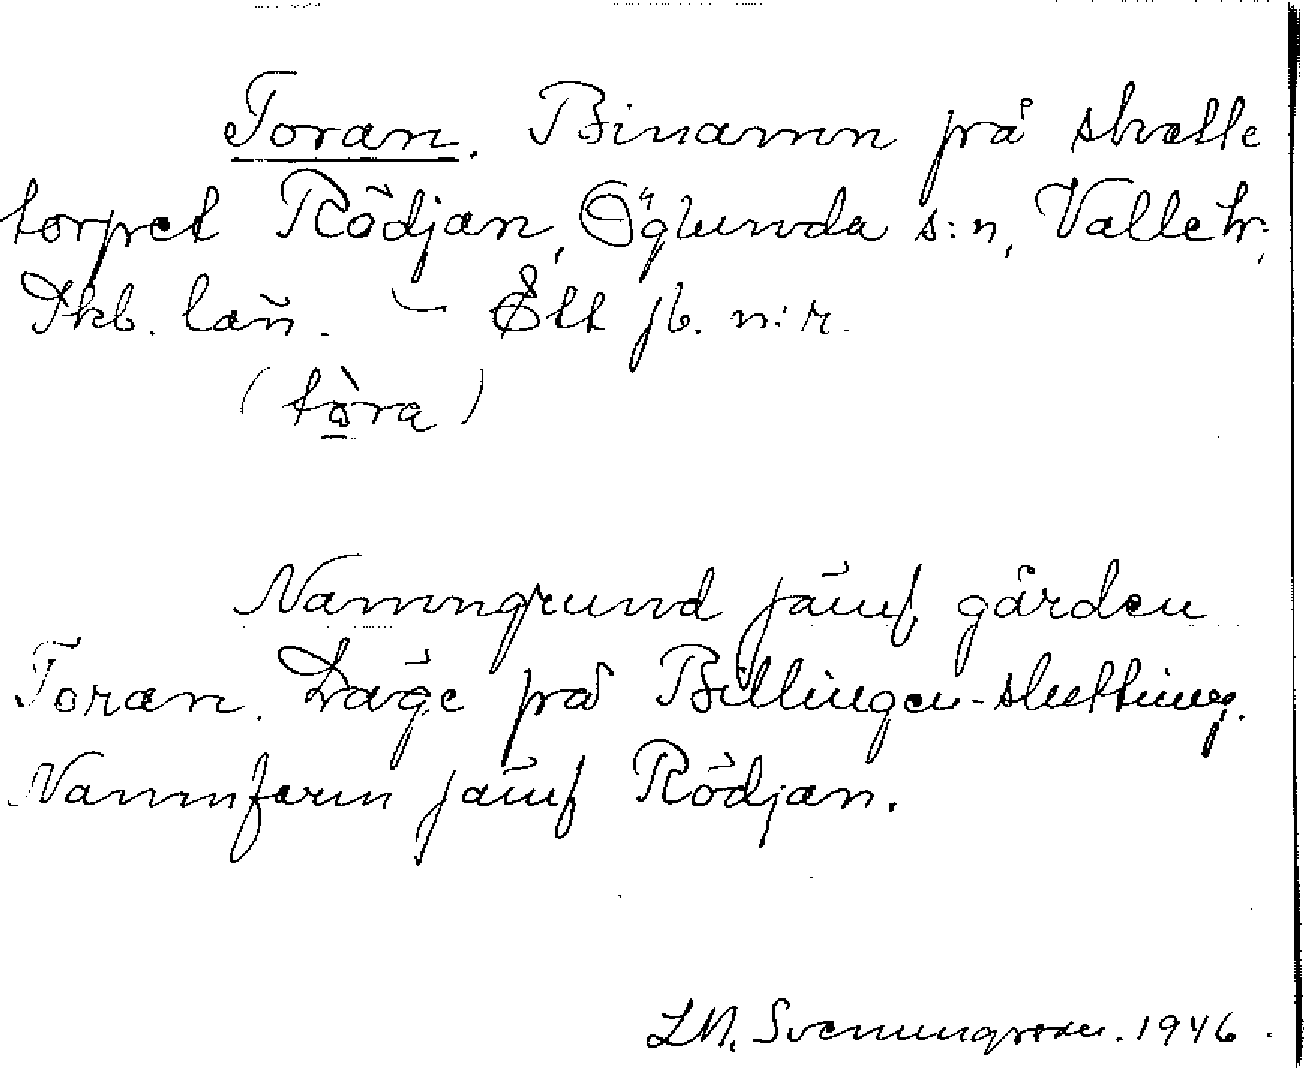 Toran. Binamn på skatte
torpet Rödjan, Öglunda s:n, Valle hr.,
Skb. län. – Ett jb. n:r.
(tòra)
Namngrund jämf gården
Toran. Läge på Billingen-sluttning.
Namnform jämf Rödjan.
LM. Svenungsson. 1946.